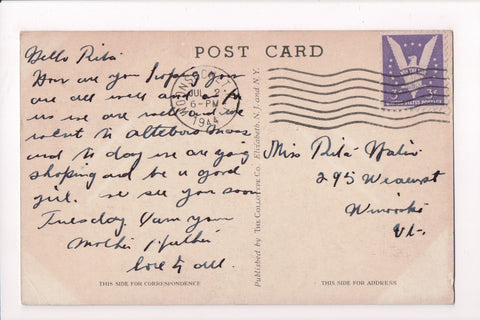 Hello Rita
POST CARD
How are you hoping you
are all well and as for
us we are well and we
went to Attleboro Mass
and to day we are going
shopping and be a good
girl. we see you soon
Tuesday. your
mother & father
love to all.
WOONSOCKET
JUL 2
6-PM
1944
WIN THE WAR
3¢
UNITED STATES POSTAGE
Miss Rita
295
Winooski
Vt-
Published by The Collotype Co., Elizabeth, N. J. and N. Y.
THIS SIDE FOR CORRESPONDENCE
THIS SIDE FOR ADDRESS